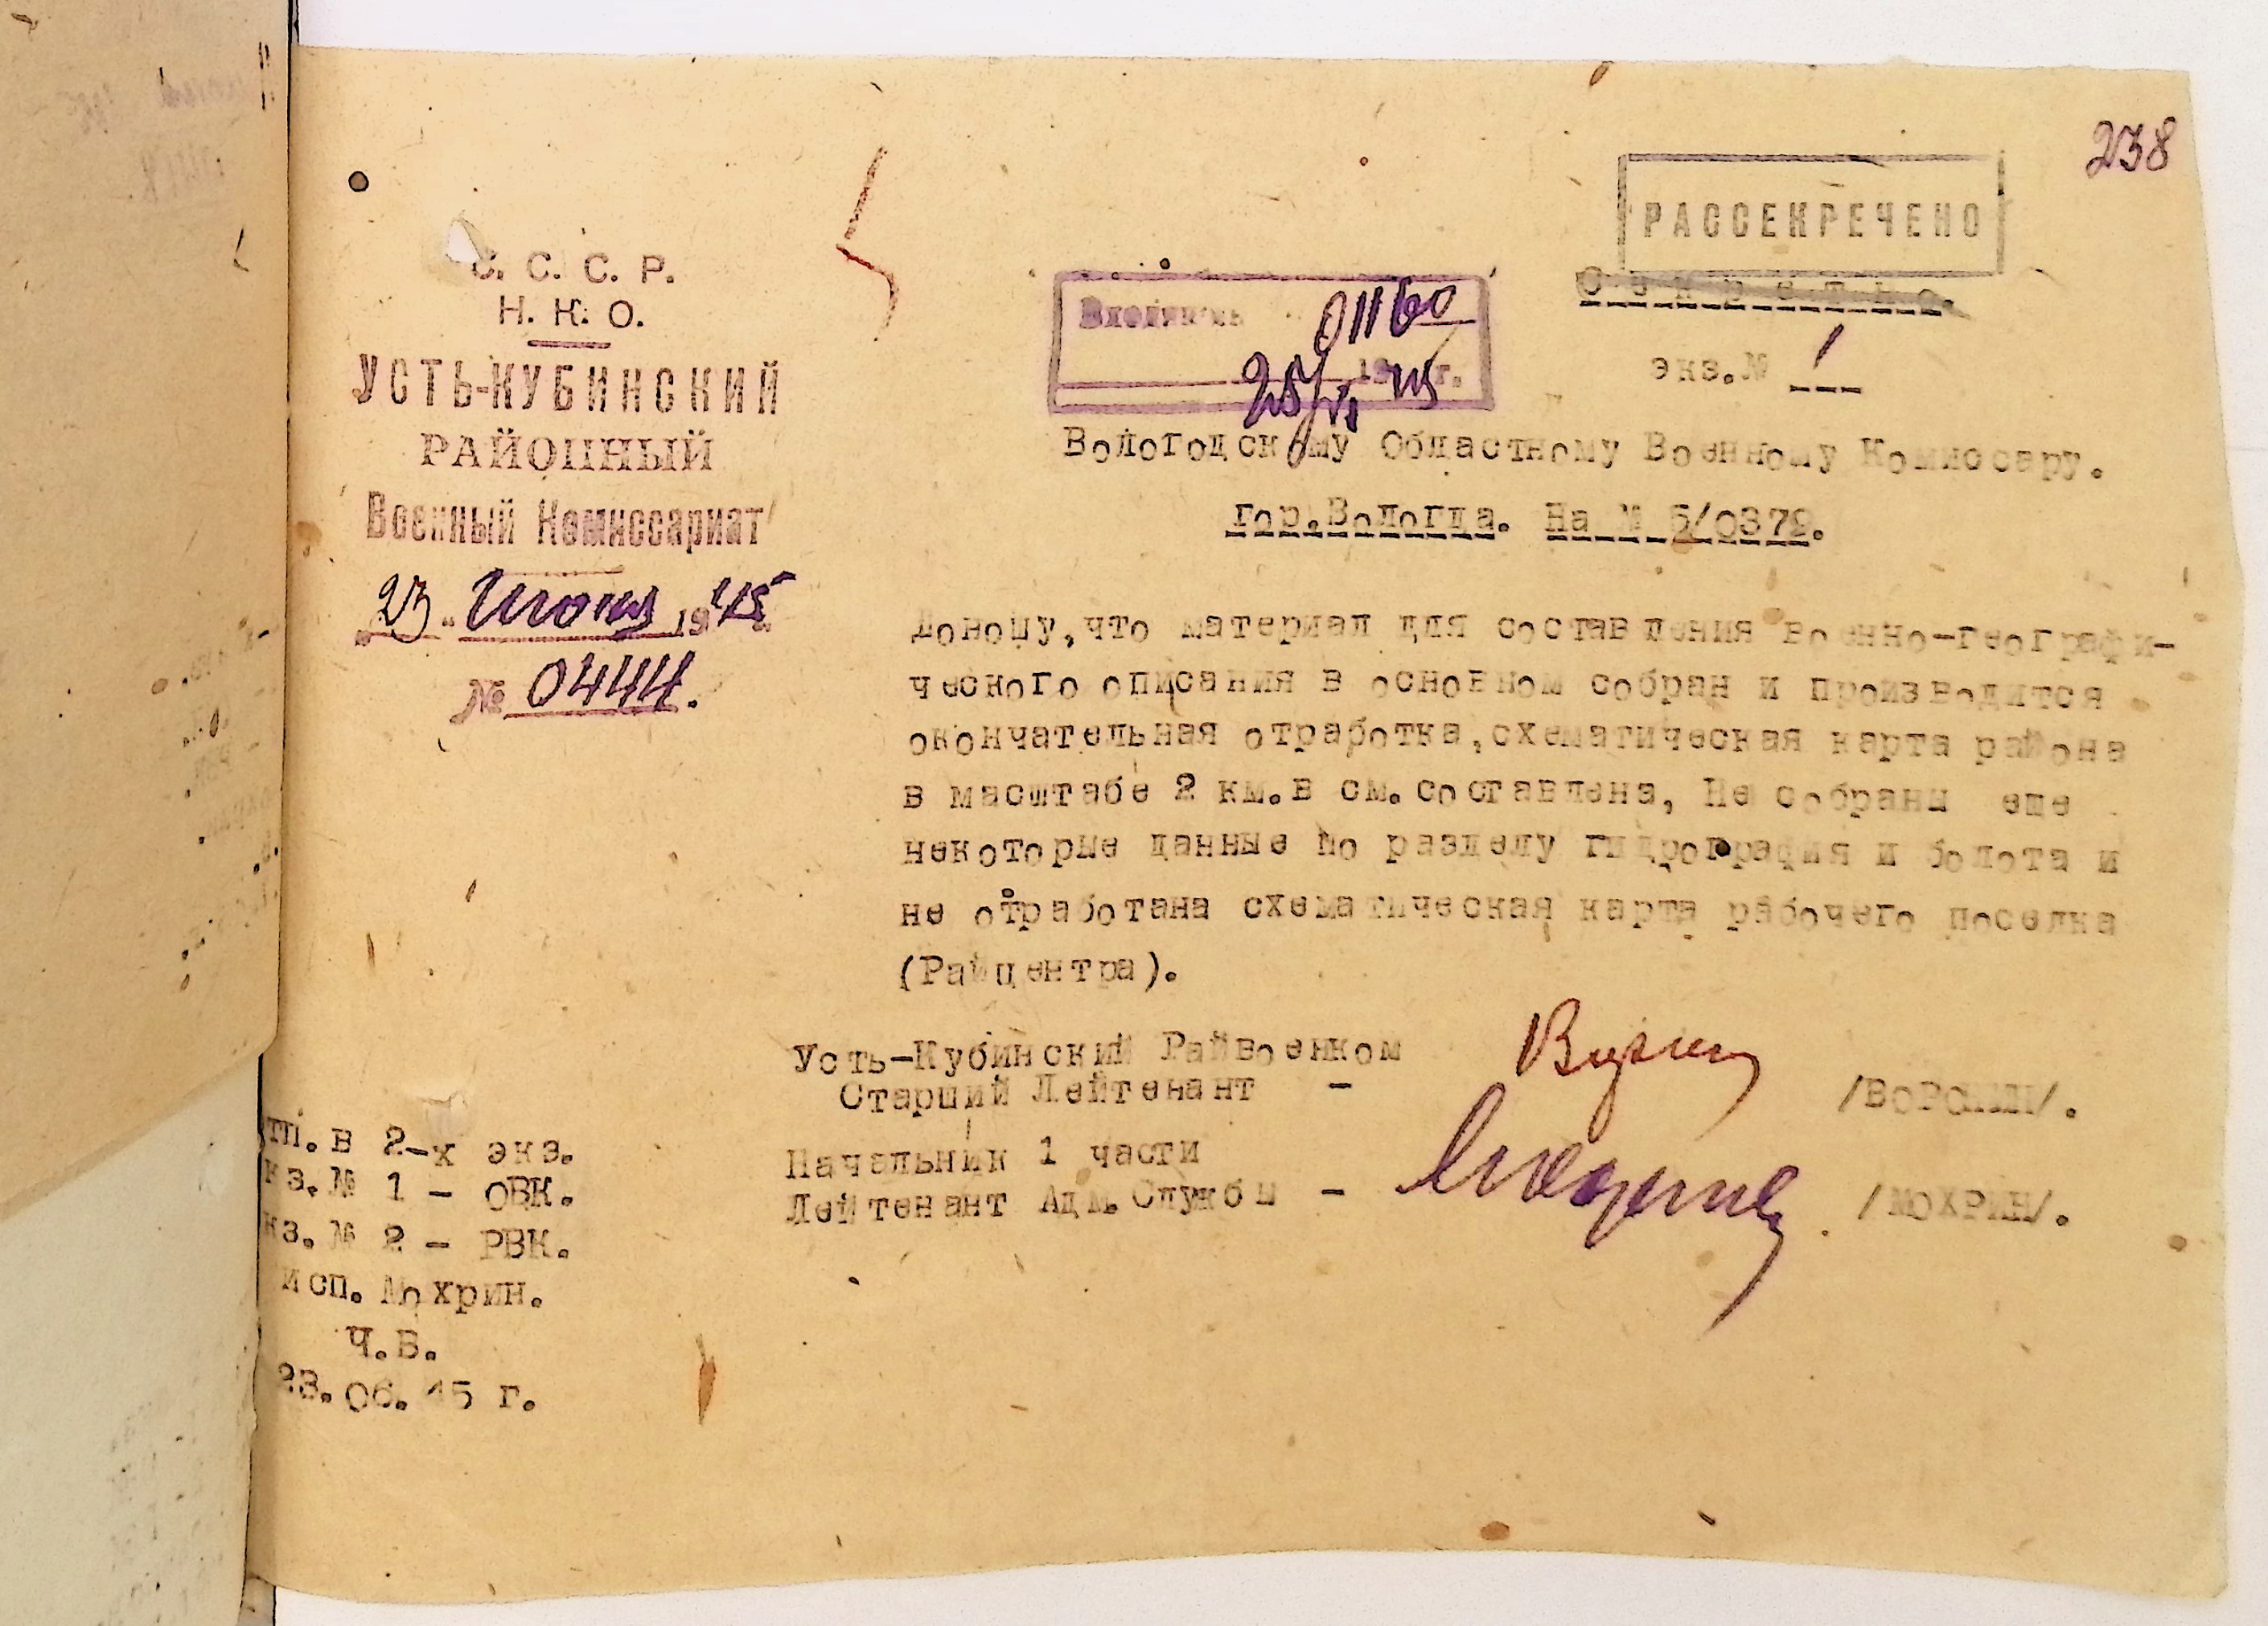 238
РАССЕКРЕЧЕНО
С е к р е т н о.
экз.№ 1
С. С. С. Р.
Н. К. О.
УСТЬ-КУБИНСКИЙ
РАЙОННЫЙ
Военный Комиссариат
23 Июня 1945
№ 0444.
01160
25/VI 1945 г.
Вологодскому Областному Военному Комиссару.
гор.Вологда. На № 5/0379.
Доношу,что материал для составления военно-географи-
ческого описания в основном собран и производится
окончательная отработка,схематическая карта района
в масштабе 2 км.в см.составлена, Не собраны еще
некоторые данные по разделу гидрография и болота и
не отработана схематическая карта рабочего поселка
(Райцентра).
Усть-Кубинский Райвоенком
Старший Лейтенант -
Начальник 1 части
Лейтенант Адм.Службы - /МОХРИН/.
тп. в 2-х экз.
кз.№ 1 - ОВК.
кз.№ 2 - РВК.
исп. Мохрин.
Ч.В.
23.06.45 г.